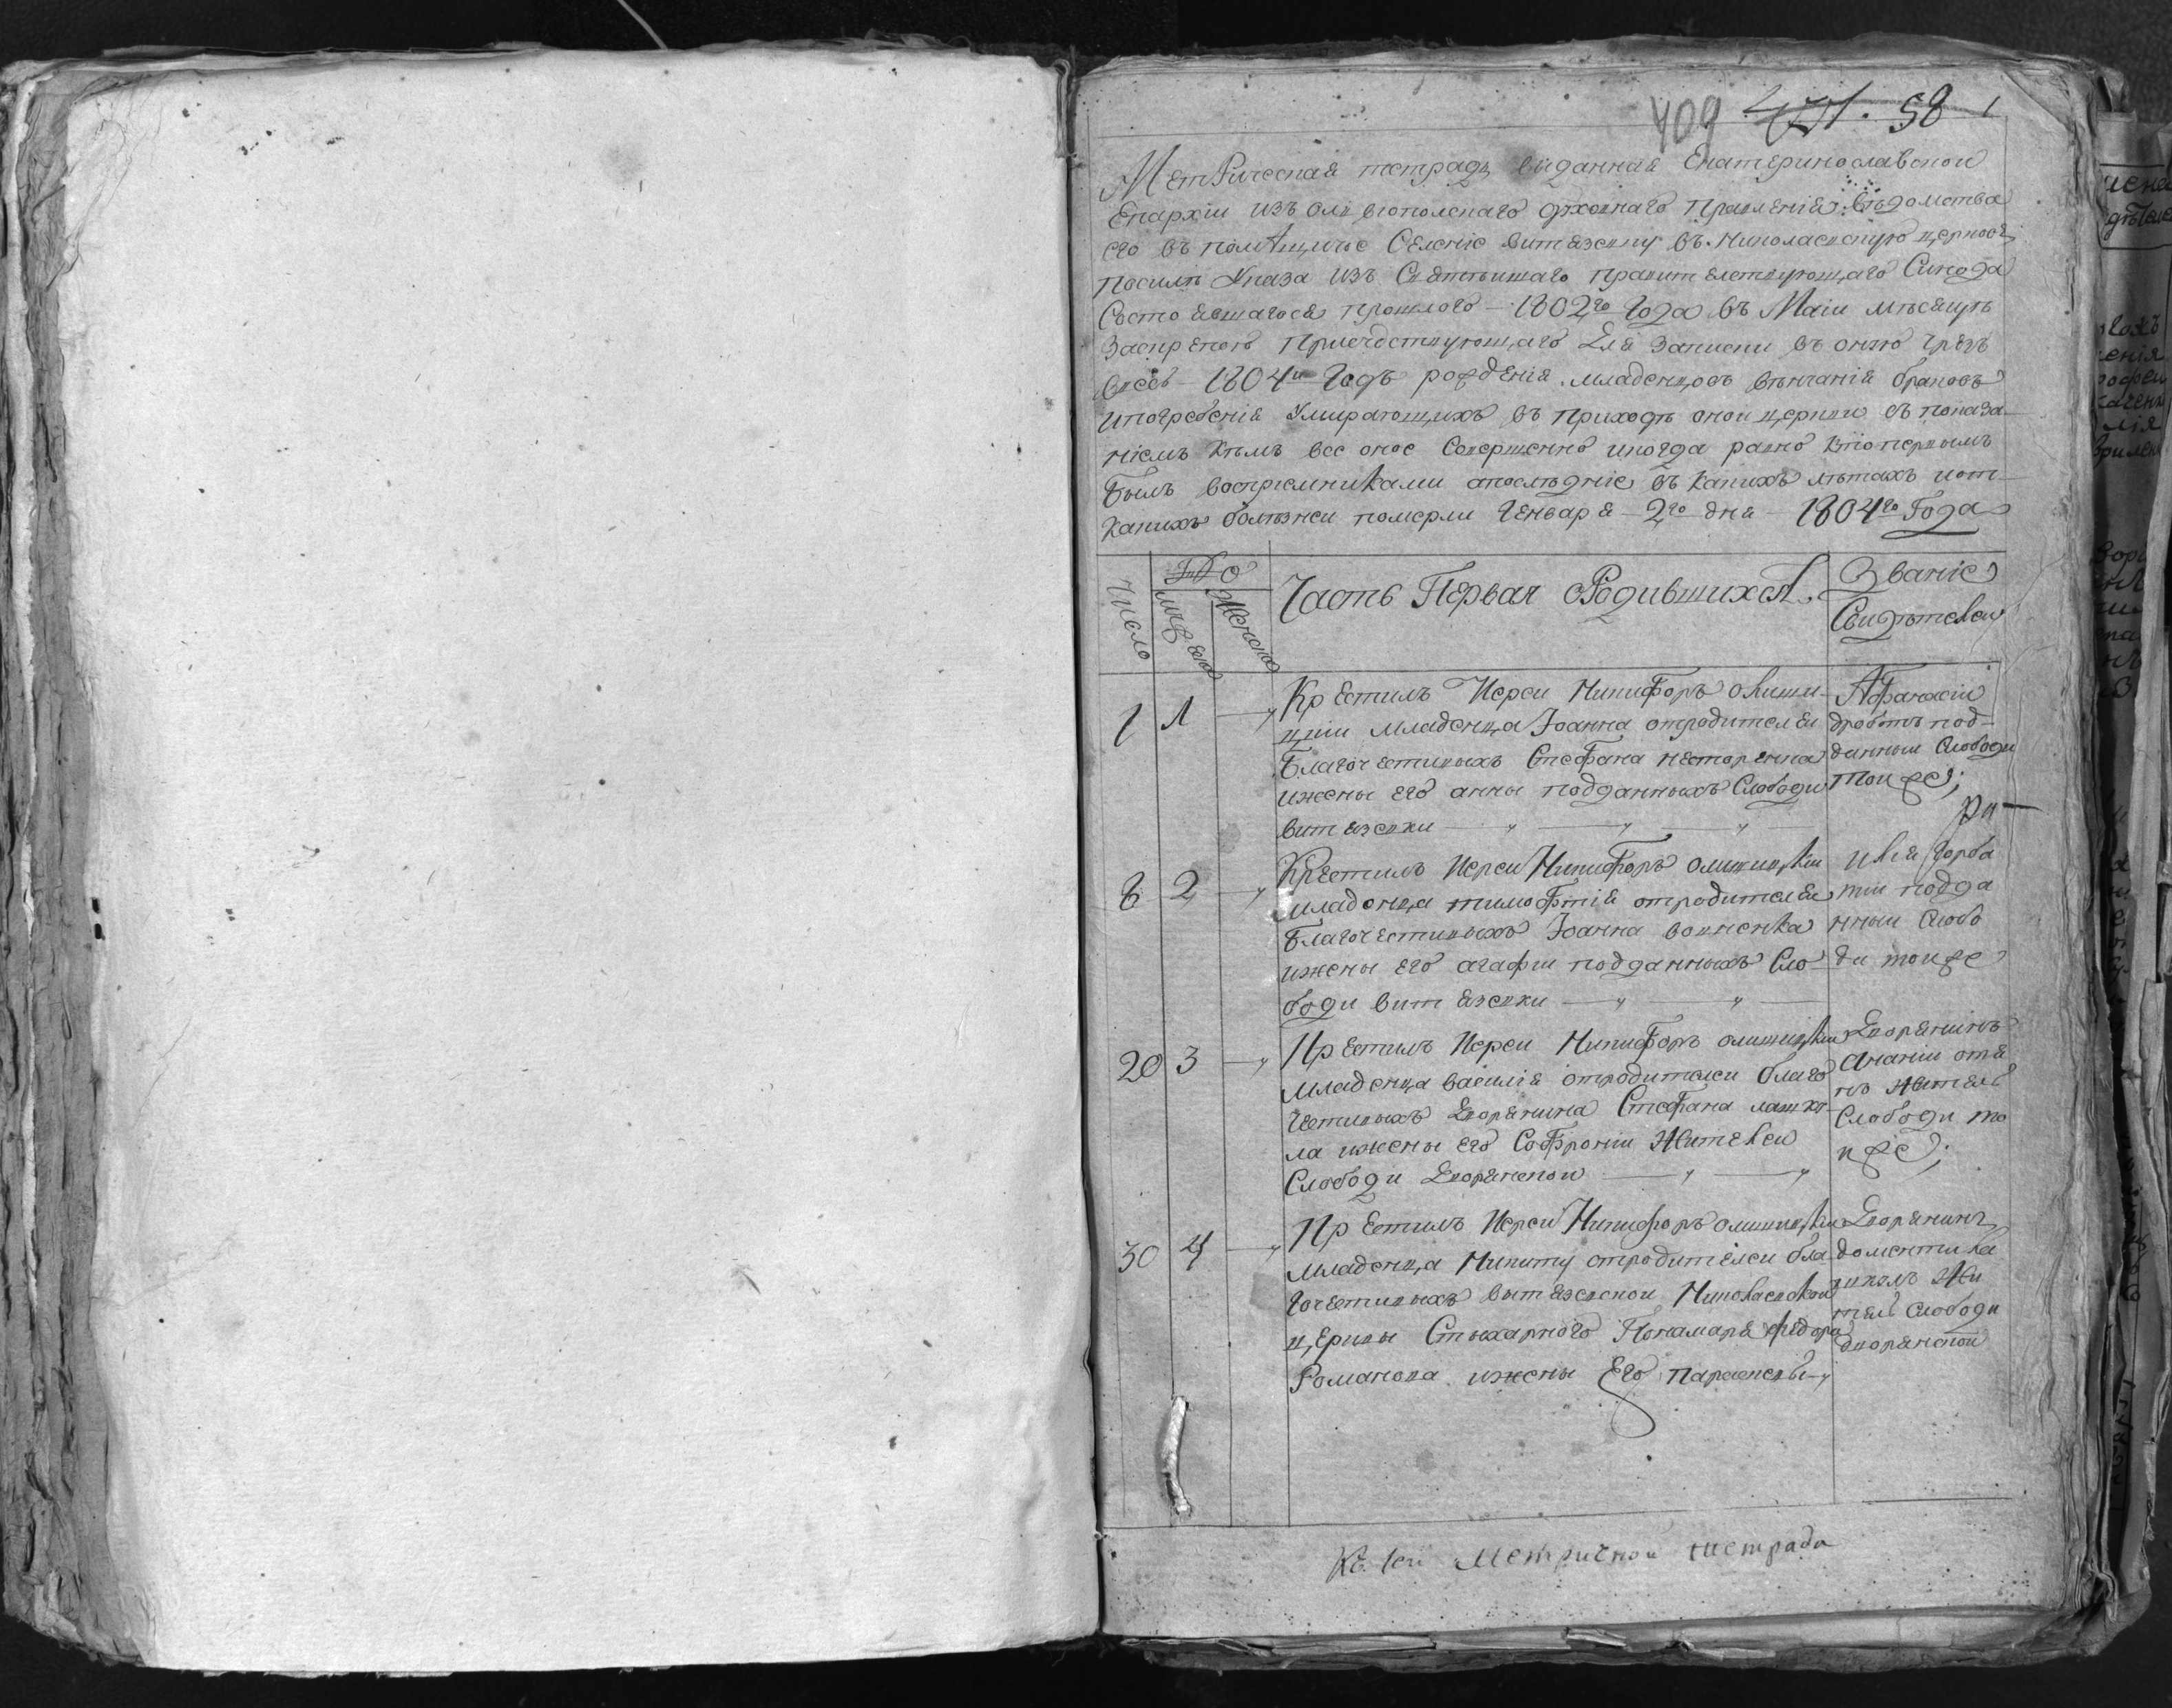 409 421. 58 1
Метрическая тетрадь выданная Екатеринославской
Епархіи изъ Олвіопольскаго духовнаго правленія вѣдомства
его въ помѣщичье Селеніе витязевку въ Николаевскую церковь
посилѣ Указа изъ Святѣишаго правителствующаго Синода
Состоявшагося прошлого 1802го Года въ Маіи мѣсяцѣ
Заскрепою Присудствующаго Для записки въ оную чрезъ
весь 1804й Годъ рожденія младенцовъ вѣнчанія браковъ
ипогребенія Умирающихъ въ приходѣ оной церкви съ показа
ніемъ кѣмъ все оное Совершенно икогда равно ктокерымъ
былъ воспріемниками апослѣдніе въ какихъ лѣтахъ иот
какихъ болѣзнеи померли Генваря 2го дня 1804го Года
Число
По
мужеска
Женска
Часть Первая Родившихся
Званіе
Свидѣтелеи
1 1 Крестилъ Иереи Никифоръ Олшив
цкіи младенца Іоанна отродителеи
Благочестивыхъ Стефана нестеренка
ижены его анны подданныхъ Слободи
витязевки
Афанасіи
дроботъ под
данныи слободи
тоиже;
8 2 Крестилъ Иереи Никифоръ
младенца тимофтія отродителеи
Благочестивыхъ Іоанна воиненка
ижены его агафіи подданныхъ Сло
боди витязевки
Илія Горба
тіи подда
нныи Слобо
ди тоиже
20 3 Крестилъ Иереи Никифоръ
младенца василія отродителеи благо
честивыхъ Дворянина Стефана
ла ижены его Софроніи Жителеи
Слободи Дворянскои
Дворянинъ
Ананіи
житель
Слободи то
иже;
30 4 Крестилъ Иереи Никифоръ
младенца Никиту отродителеи бла
гочестивыхъ вытязевскои Николаевскои
церкви Стыхарного Понамаря Федора
Романова ижены Его парасковѣ
Дворянинъ
Жи
тель слободи
дворянскои
Къ сеи Метричнои тетради